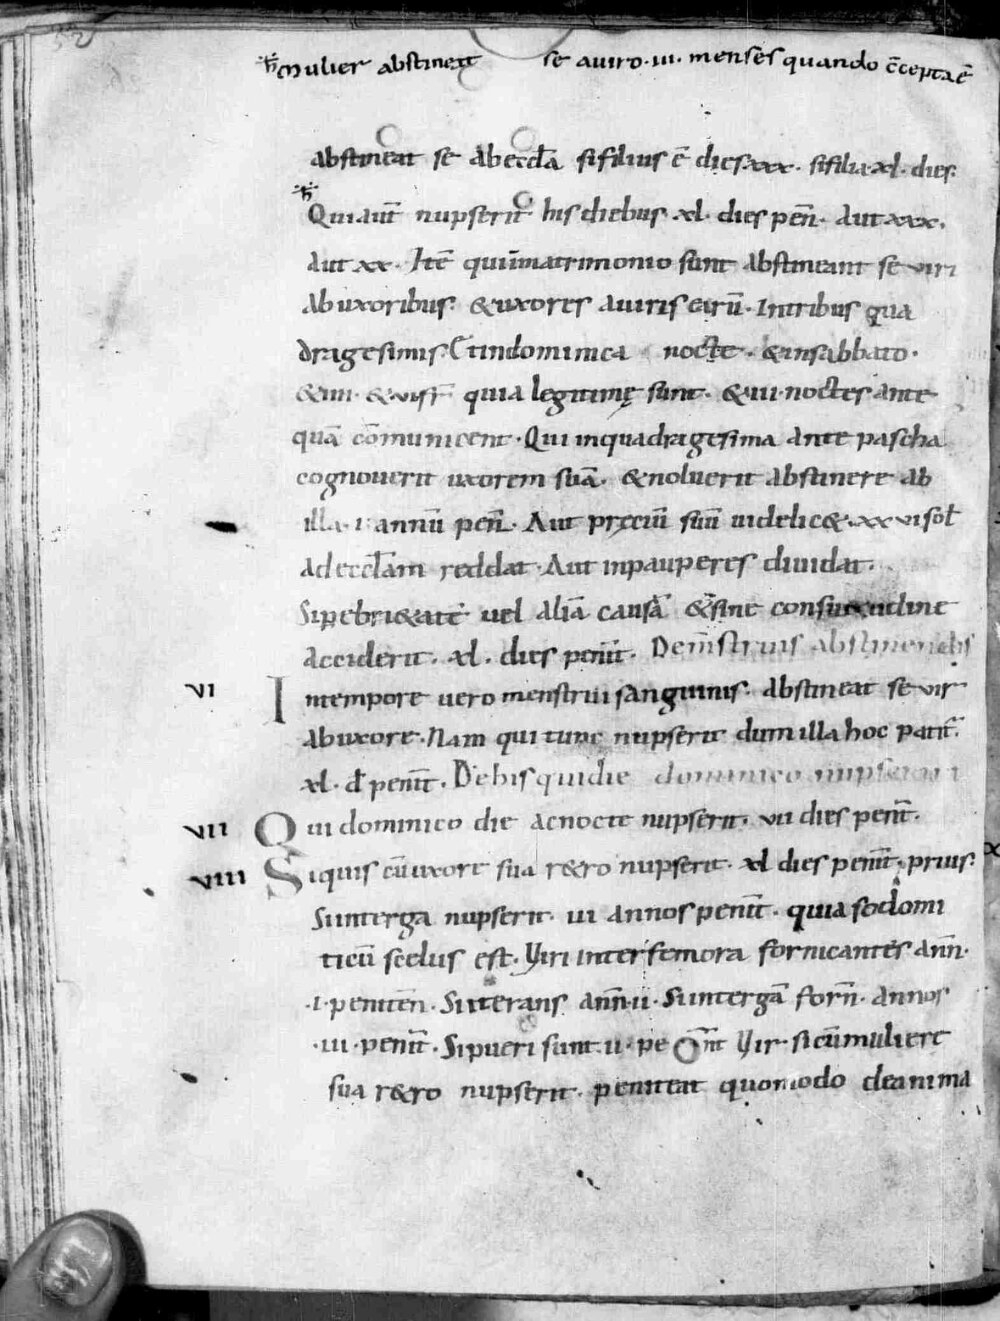 52
h̄ Mulier abstineat se aviro · iii · menses quando c̄cepta ē
abstineat se ab eccl̄a si filius ē dies xxx · si filia · xl · dies
h̄
Qui aut̄ nupserit his diebus xl · dies pen̄ · aut xxx ·
aut xx · Itē qui in matrimonio sunt abstineant se viri
ab uxoribus · & uxores a viris earū · In tribus qua
dragesimis Et in dominica nocte · & in sabbato ·
& iiii · & vi quia legitimę sunt · & iii · noctes ante
quā cōmunicent · Qui in quadragesima ante pascha
cognoverit uxorem suā · & noluerit abstinere ab
illa · i · annū pen̄ · Aut preciū suū videlic& · xxvi sol̄
ad eccl̄am reddat · Aut in pauperes dividat ·
Si p ebri&atē vel aliā causā & sine consuetudine
acciderit · xl · dies penit̄ · De menstruis abstinendis
VI In tempore vero menstrui sanguinis · abstineat se vir
ab uxore · Nam qui tunc nupserit dum illa hoc patit̄ ·
xl · d̄ penit̄ · De his qui die dominico nupserint
VII Qui dominico die ac nocte nupserit · vii dies penit̄ ·
VIIII Si quis cū uxore sua r&ro nupserit · xl dies penit̄ · prius ·
Si in terga nupserit · iii annos penit̄ · quia sodomi
ticū scelus est · Viri inter femora fornicantes ann̄ ·
· i · peniten̄ · Si iterans ann̄ · ii · Si in tergā forn̄ · annos
· iii · penit̄ · Si pueri sunt · ii · pe nit̄ Vir · si cū muliere
sua r&ro nupserit · peniteat quomodo de anima